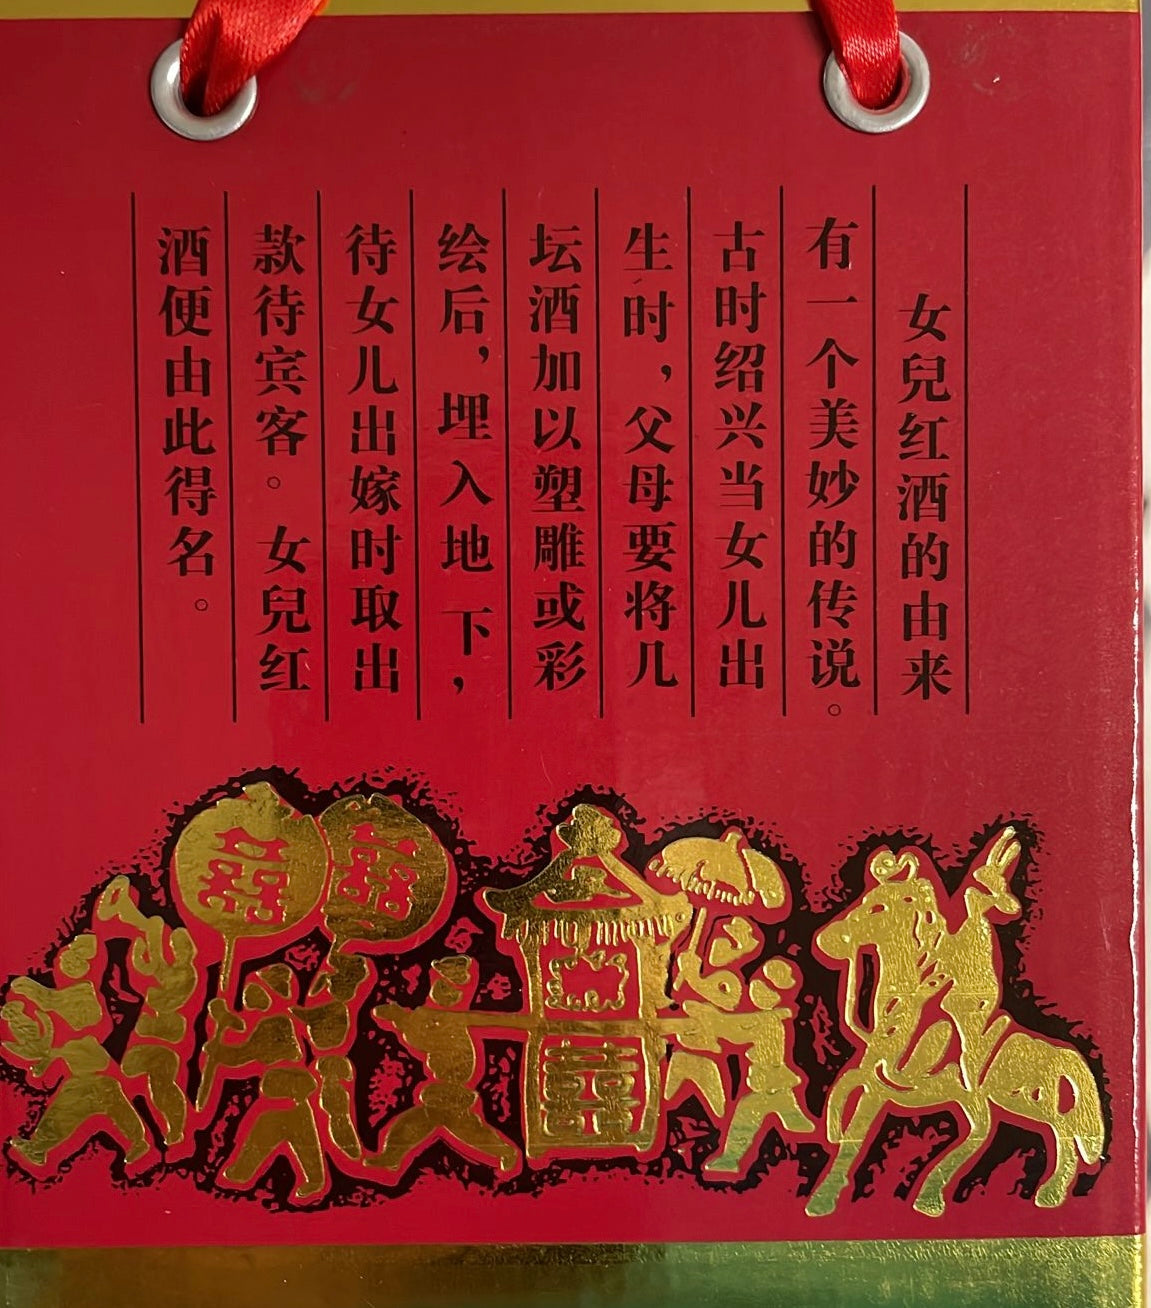 女兒红酒的由来
有一个美妙的传说。
古时绍兴当女儿出
生时，父母要将几
坛酒加以塑雕或彩
绘后，埋入地下，
待女儿出嫁时取出
款待宾客。女兒红
酒便由此得名。
囍
囍
囍